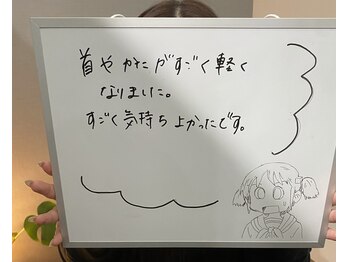 首やかたがすごく軽く
なりました。
すごく気持ち上かったです。